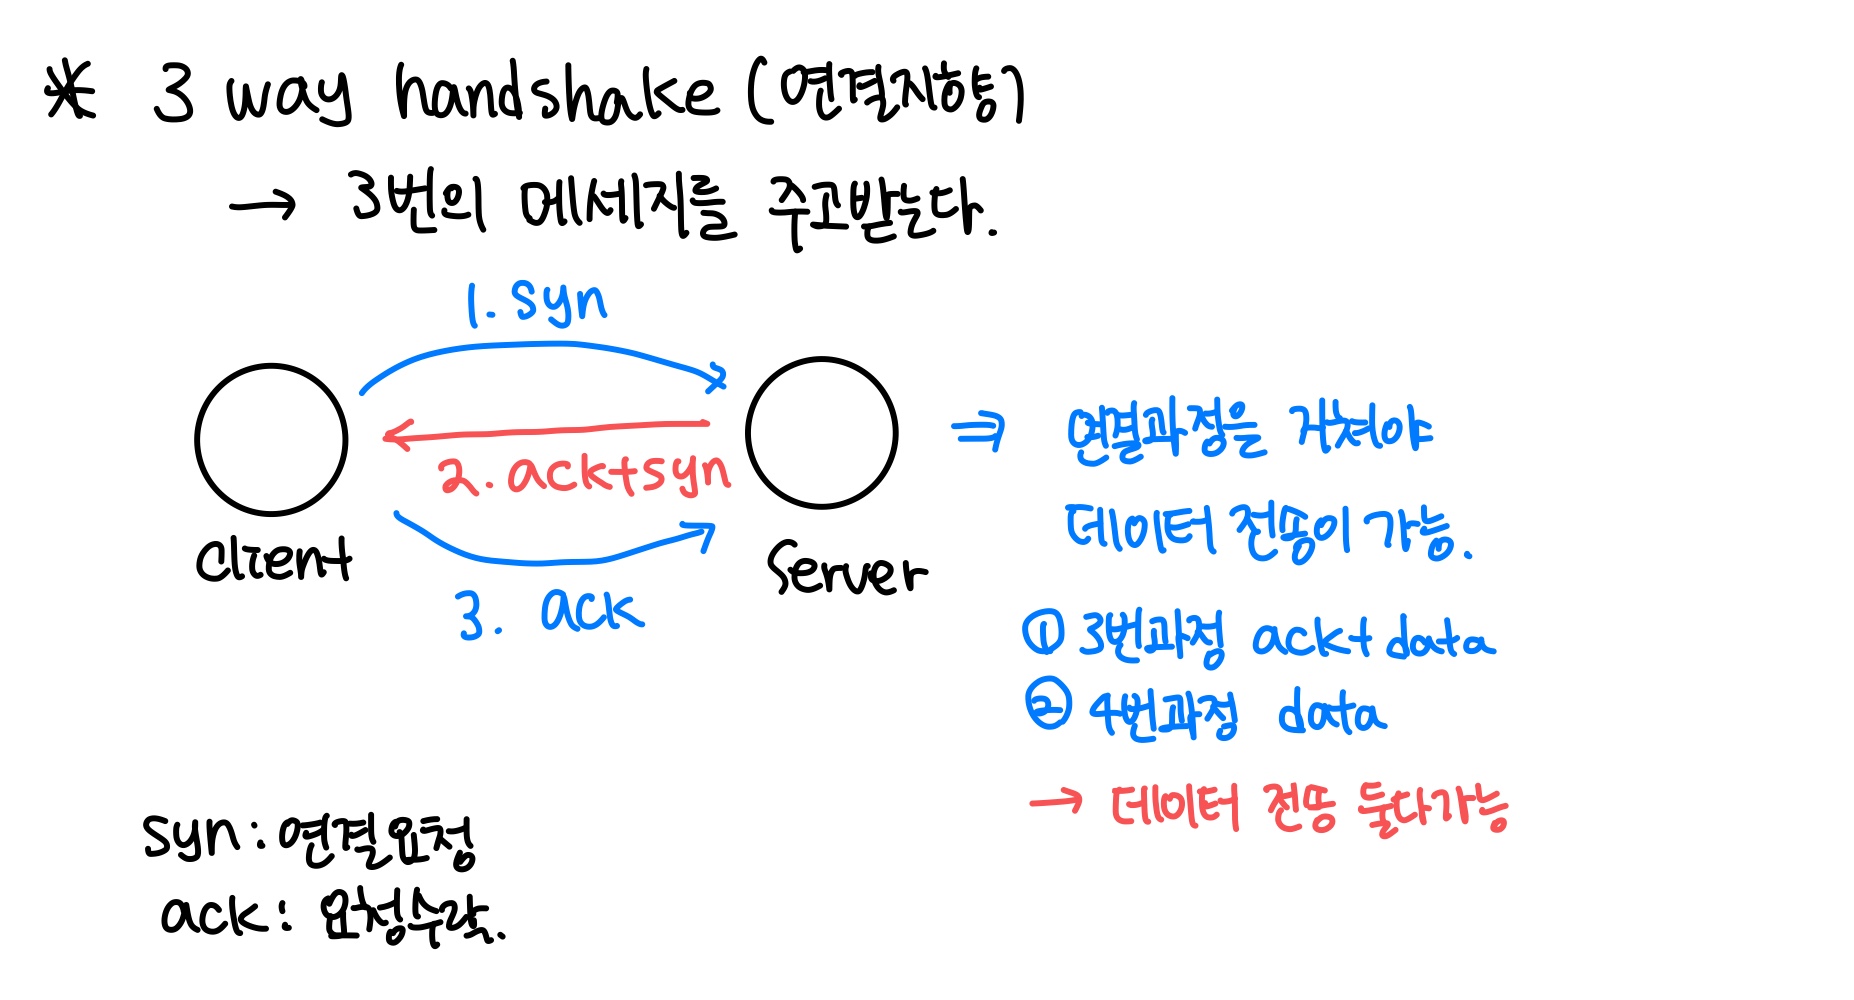 * 3 way handshake (연결지향)
→ 3번의 메세지를 주고받는다.
1. syn
2. ack+syn
3. ack
Client
Server
⇒ 연결과정을 거쳐야
데이터 전송이 가능.
① 3번과정 ack+data
② 4번과정 data
→ 데이터 전송 둘다가능
syn : 연결요청
ack : 요청수락.